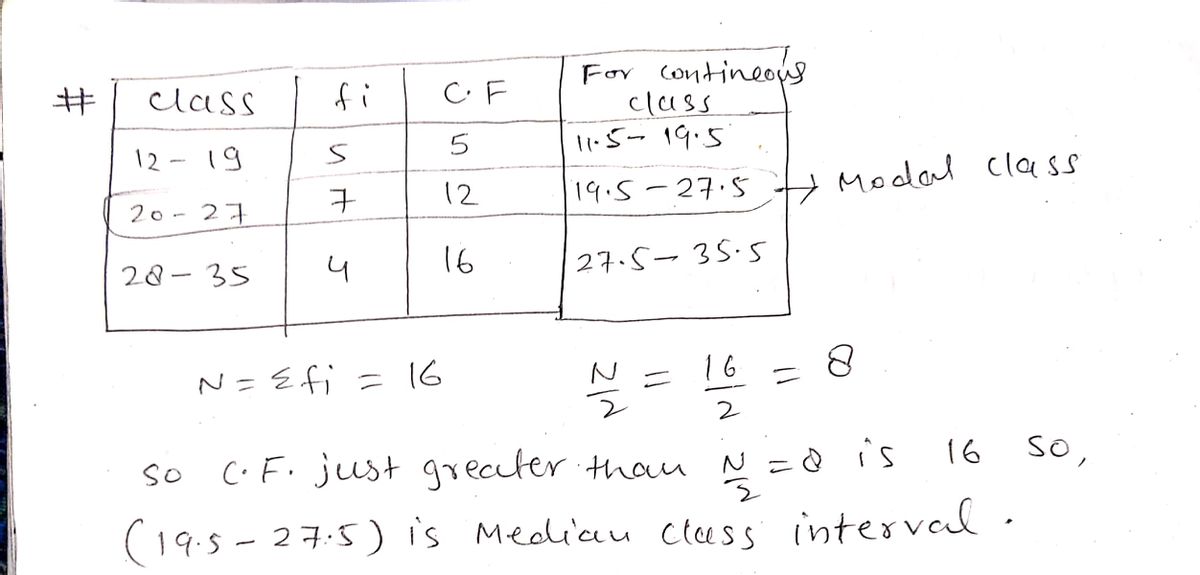 # class fi C.F For contineous class
12 - 19 5 5 11.5 - 19.5
20 - 27 7 12 19.5 - 27.5 → Modal class
28 - 35 4 16 27.5 - 35.5
N = Σfi = 16 N/2 = 16/2 = 8
so C.F. just greater than N/2 = 8 is 16 so,
(19.5 - 27.5) is Median class interval.